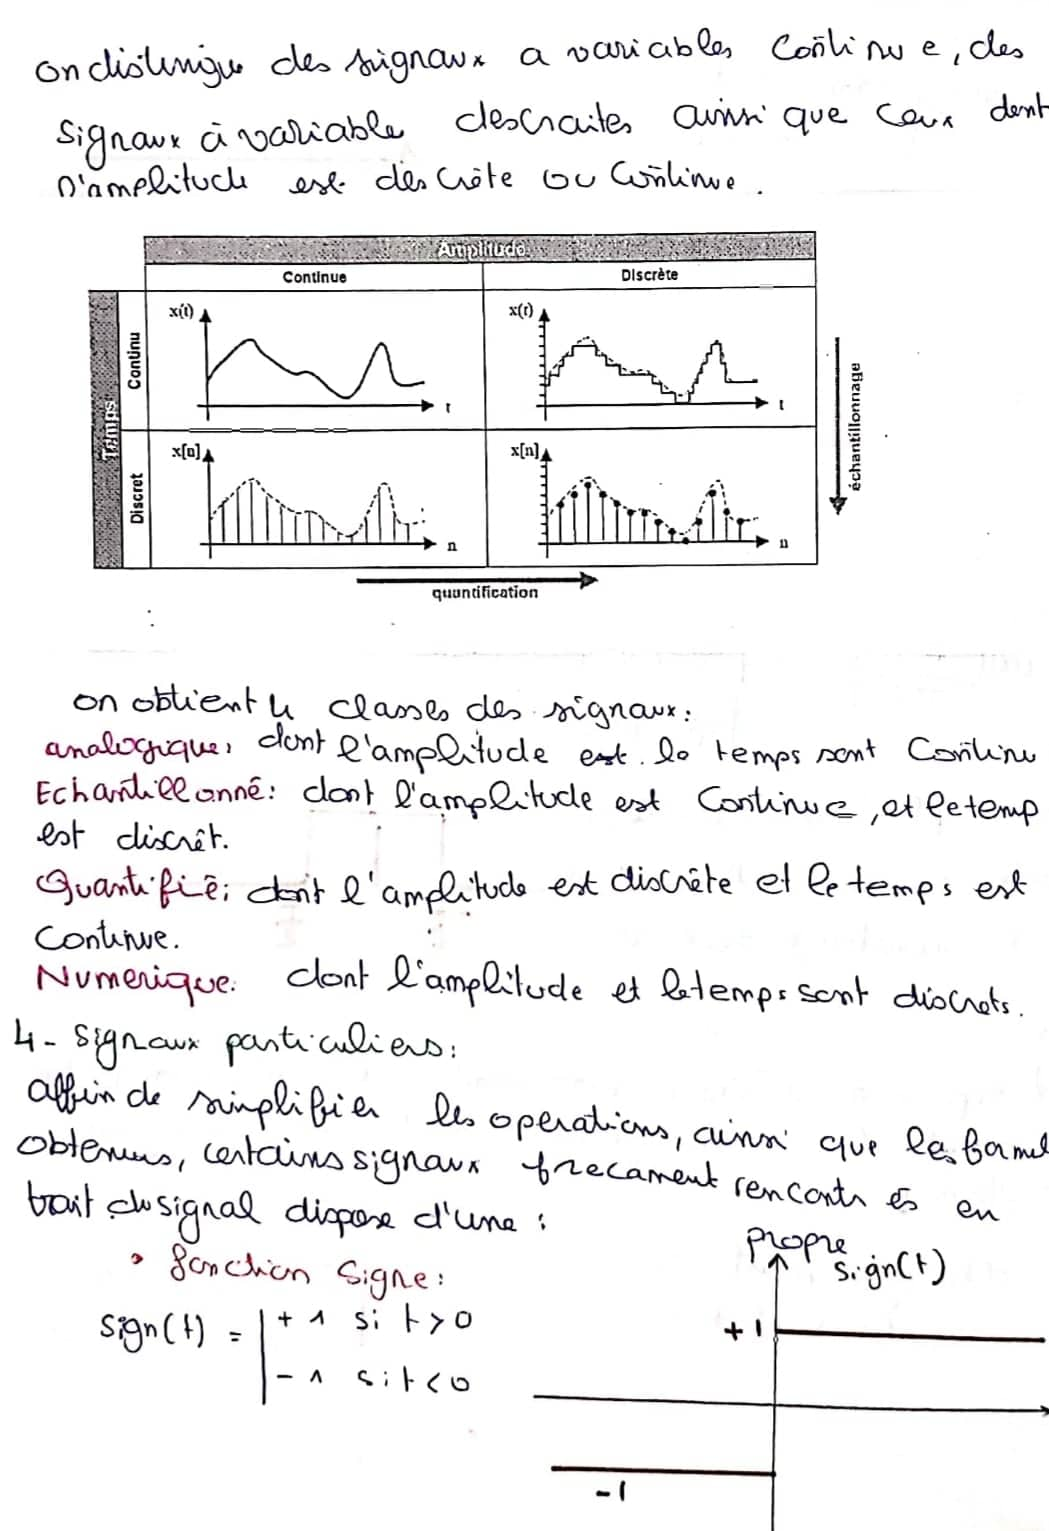 on distingue des signaux a variables continue, des
signaux à variable descraites ainsi que ceux dont
l'amplitude est discrète ou continue.
Amplitude
Continue Discrète
Temps
Continu
x(t) t
x(t) t
Discret
x[n] n
x[n] n
échantillonnage
quantification
on obtient 4 classes des signaux:
analogique: dont l'amplitude est le temps sont continu
Echantillonné: dont l'amplitude est continue, et le temp
est discrêt.
Quantifié: dont l'amplitude est discrète et le temps est
continue.
Numerique: dont l'amplitude et le temps sont discrets.
4- Signaux particuliers:
affin de simplifier les operations, ainsi que les formel
obtenus, certains signaux frecament rencontrés en
trait du signal dispose d'une :
propre
• fonction Signe:
sign(t) = | +1 si t>0
| -1 si t<0
sign(t)
+1
-1